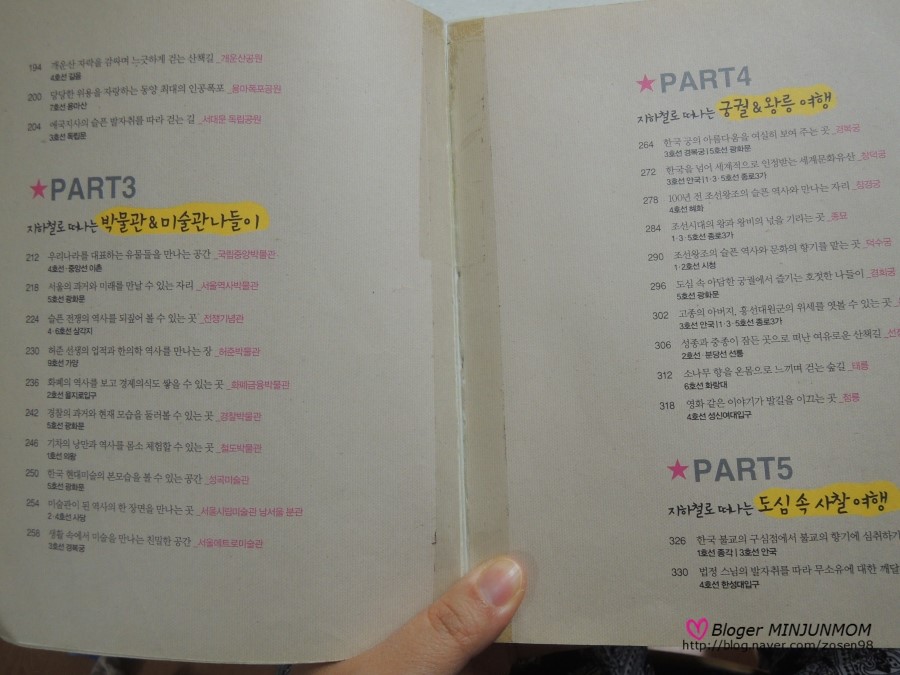 194 개운산 자락을 감싸며 느긋하게 걷는 산책길 _개운산공원
4호선 길음
200 당당한 위용을 자랑하는 동양 최대의 인공폭포 _용마폭포공원
7호선 용마산
204 애국지사의 슬픈 발자취를 따라 걷는 길 _서대문 독립공원
3호선 독립문
★PART3
지하철로 떠나는 박물관&미술관 나들이
212 우리나라를 대표하는 유물들을 만나는 공간 _국립중앙박물관
4호선·중앙선 이촌
218 서울의 과거와 미래를 만날 수 있는 자리 _서울역사박물관
5호선 광화문
224 슬픈 전쟁의 역사를 되짚어 볼 수 있는 곳 _전쟁기념관
4·6호선 삼각지
230 허준 선생의 업적과 한의학 역사를 만나는 장 _허준박물관
9호선 가양
236 화폐의 역사를 보고 경제의식도 쌓을 수 있는 곳 _화폐금융박물관
2호선 을지로입구
242 경찰의 과거와 현재 모습을 둘러볼 수 있는 곳 _경찰박물관
5호선 광화문
246 기차의 낭만과 역사를 몸소 체험할 수 있는 곳 _철도박물관
1호선 의왕
250 한국 현대미술의 본모습을 볼 수 있는 공간 _성곡미술관
5호선 광화문
254 미술관이 된 역사의 한 장면을 만나는 곳 _서울시립미술관 남서울 분관
2·4호선 사당
258 생활 속에서 미술을 만나는 친밀한 공간 _서울메트로미술관
3호선 경복궁
★PART4
지하철로 떠나는 궁궐&왕릉 여행
264 한국 궁의 아름다움을 여실히 보여 주는 곳 _경복궁
3호선 경복궁|5호선 광화문
272 한국을 넘어 세계적으로 인정받는 세계문화유산 _창덕궁
3호선 안국|1·3·5호선 종로3가
278 100년 전 조선왕조의 슬픈 역사와 만나는 자리 _창경궁
4호선 혜화
284 조선시대의 왕과 왕비의 넋을 기리는 곳 _종묘
1·3·5호선 종로3가
290 조선왕조의 슬픈 역사와 문화의 향기를 맡는 곳 _덕수궁
1·2호선 시청
296 도심 속 아담한 궁궐에서 즐기는 호젓한 나들이 _경희궁
5호선 광화문
302 고종의 아버지, 흥선대원군의 위세를 엿볼 수 있는 곳
3호선 안국|1·3·5호선 종로3가
306 성종과 중종이 잠든 곳으로 떠난 여유로운 산책길
2호선·분당선 선릉
312 소나무 향을 온몸으로 느끼며 걷는 숲길 _태릉
6호선 화랑대
318 영화 같은 이야기가 발길을 이끄는 곳 _정릉
4호선 성신여대입구
★PART5
지하철로 떠나는 도심 속 사찰 여행
326 한국 불교의 구심점에서 불교의 향기에 심취하기
1호선 종각|3호선 안국
330 법정 스님의 발자취를 따라 무소유에 대한 깨달
4호선 한성대입구
Bloger MINJUNMOM
http://blog.naver.com/zosen98